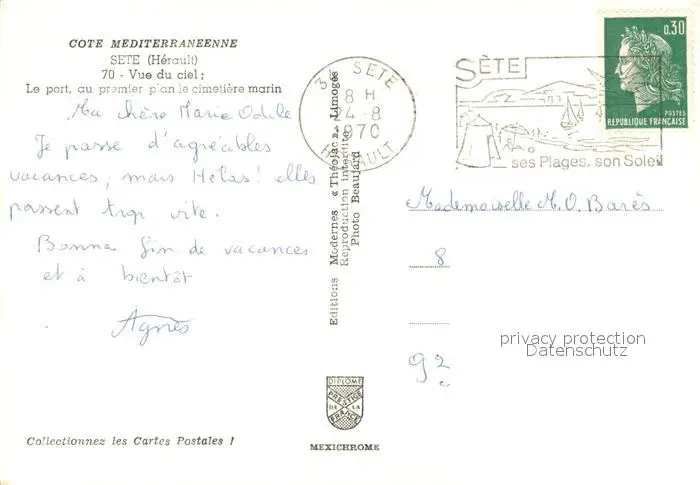 COTE MEDITERRANEENNE
SETE (Hérault)
70 - Vue du ciel ;
Le port, au premier plan le cimetière marin
Ma chère Marie Odile
Je passe d'agréables
vacances, mais Hélas! elles
passent trop vite.
Bonne fin de vacances
et à bientôt
Agnès
Collectionnez les Cartes Postales !
Editions Modernes « Théojac », Limoges
Reproduction interdite
Photo Beaujard
DIPLOME
PRESTIGE
DE LA
FRANCE
MEXICHROME
SETE
8 H
24-8
1970
HERAULT
SÈTE
ses Plages, son Soleil
0,30
POSTES
REPUBLIQUE FRANÇAISE
Mademoiselle M.O. Barès
8
92
privacy protection
Datenschutz